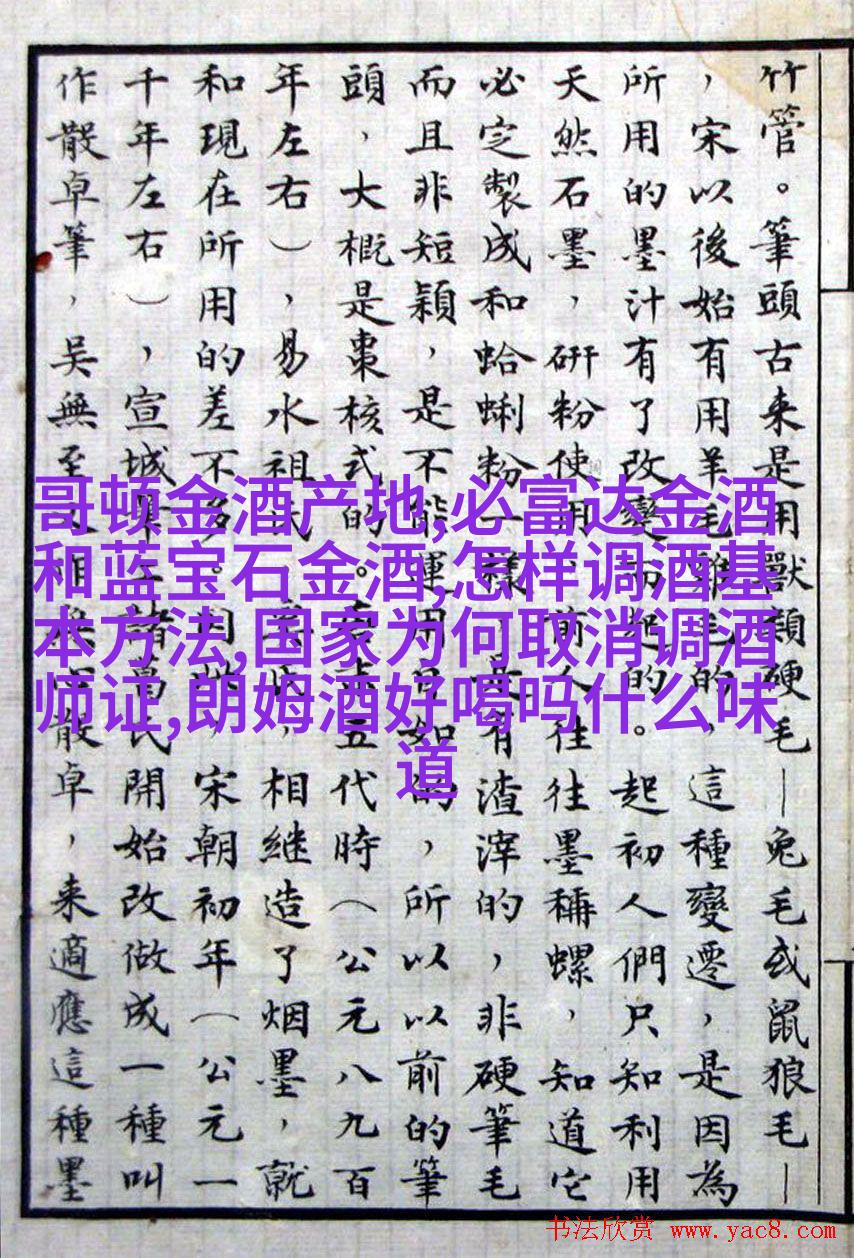 竹管。筆頭古来是用獸穎硬毛—兔毛或鼠狼毛—
，宋以後始有用羊毛雞毛的，這種變遷，是因為
所用的墨汁有了改變而起的。起初人們只知利用
天然石墨，研粉使用，前人往往墨稱螺，知道它
必定製成和蛤蜊粉一樣，是有渣滓的，非硬筆毛
而且非短穎，是不能運用自如的，所以以前的筆
頭，大概是棗核式的。唐末五代時（公元八九百
年左右），易水祖氏，相继造了烟墨，就
和現在所用的差不多。因此，宋朝初年（公元一
千年左右），宣城諸葛氏開始改做成一種叫
作散卓筆，吴無至散卓，来適應這種墨
哥顿金酒产地,必富达金酒
和蓝宝石金酒,怎样调酒基
本方法,国家为何取消调酒
师证,朗姆酒好喝吗什么味
道
书法欣赏 www.yac8.com